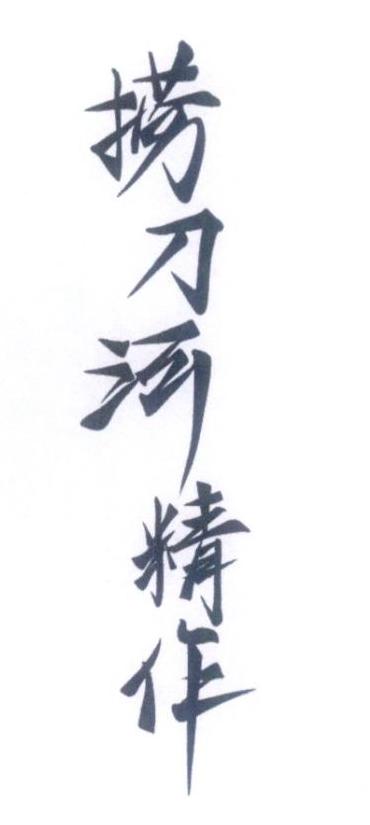 捞刀河精作